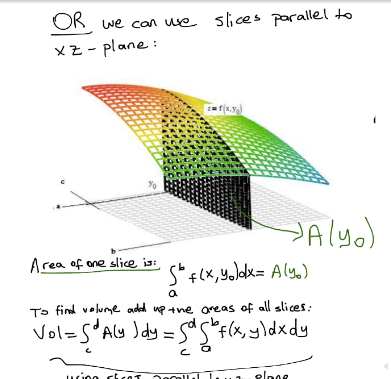 OR we can use slices parallel to
xz-plane:
z=f(x,y₀)
c
y₀
a
b
A(y₀)
Area of one slice is: ∫ₐᵇ f(x,y₀)dx = A(y₀)
To find volume add up the areas of all slices:
Vol = ∫_c^d A(y)dy = ∫_c^d ∫_a^b f(x,y)dxdy